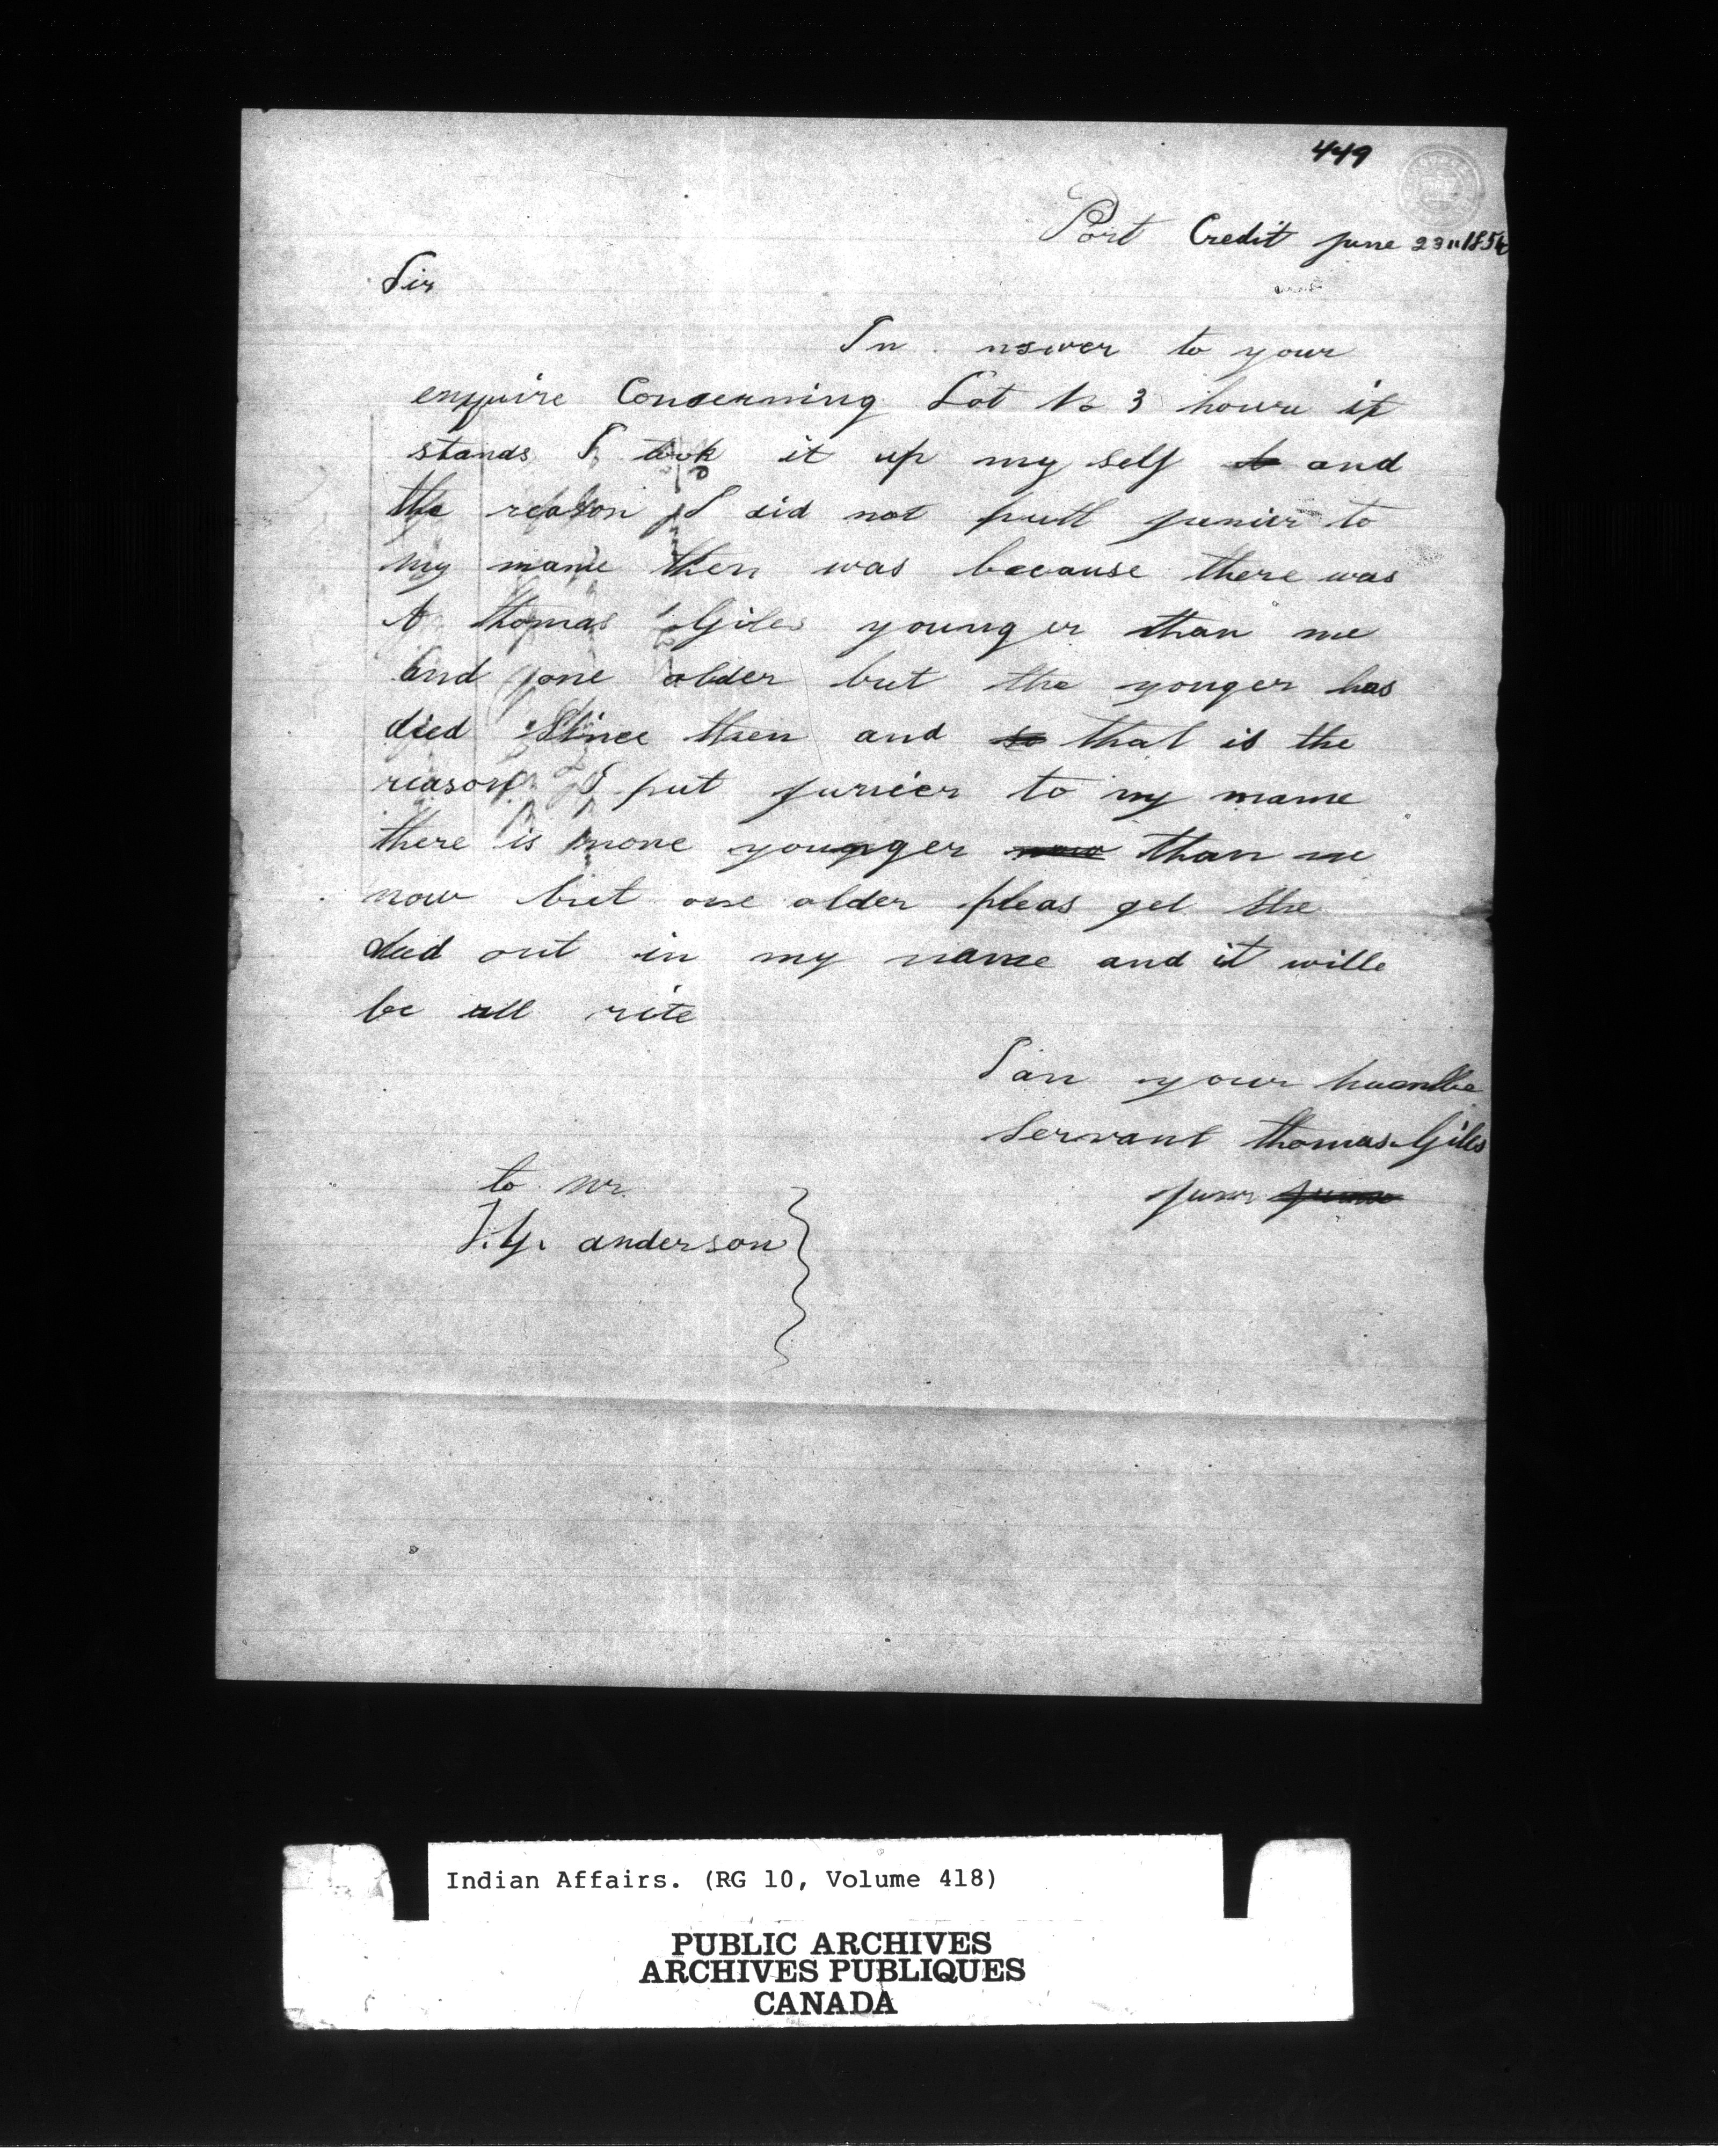 449
Port Credit june 23 " 185
Sir
In nswer to your
enquire Concerning Lot No 3 houw it
stands I took it up my self to and
the reason I did not putt junier to
my mame then was because there was
A thomas Giles younger than me
and one older but the yonger has
died since then and so that is the
reason I put junier to my mame
there is none younger now than me
now but one older pleas get the
deed out in my name and it wille
be all rite
I am your humble
Servant thomas Giles
junr
to Mr.
T.G. anderson
Indian Affairs. (RG 10, Volume 418)
PUBLIC ARCHIVES
ARCHIVES PUBLIQUES
CANADA